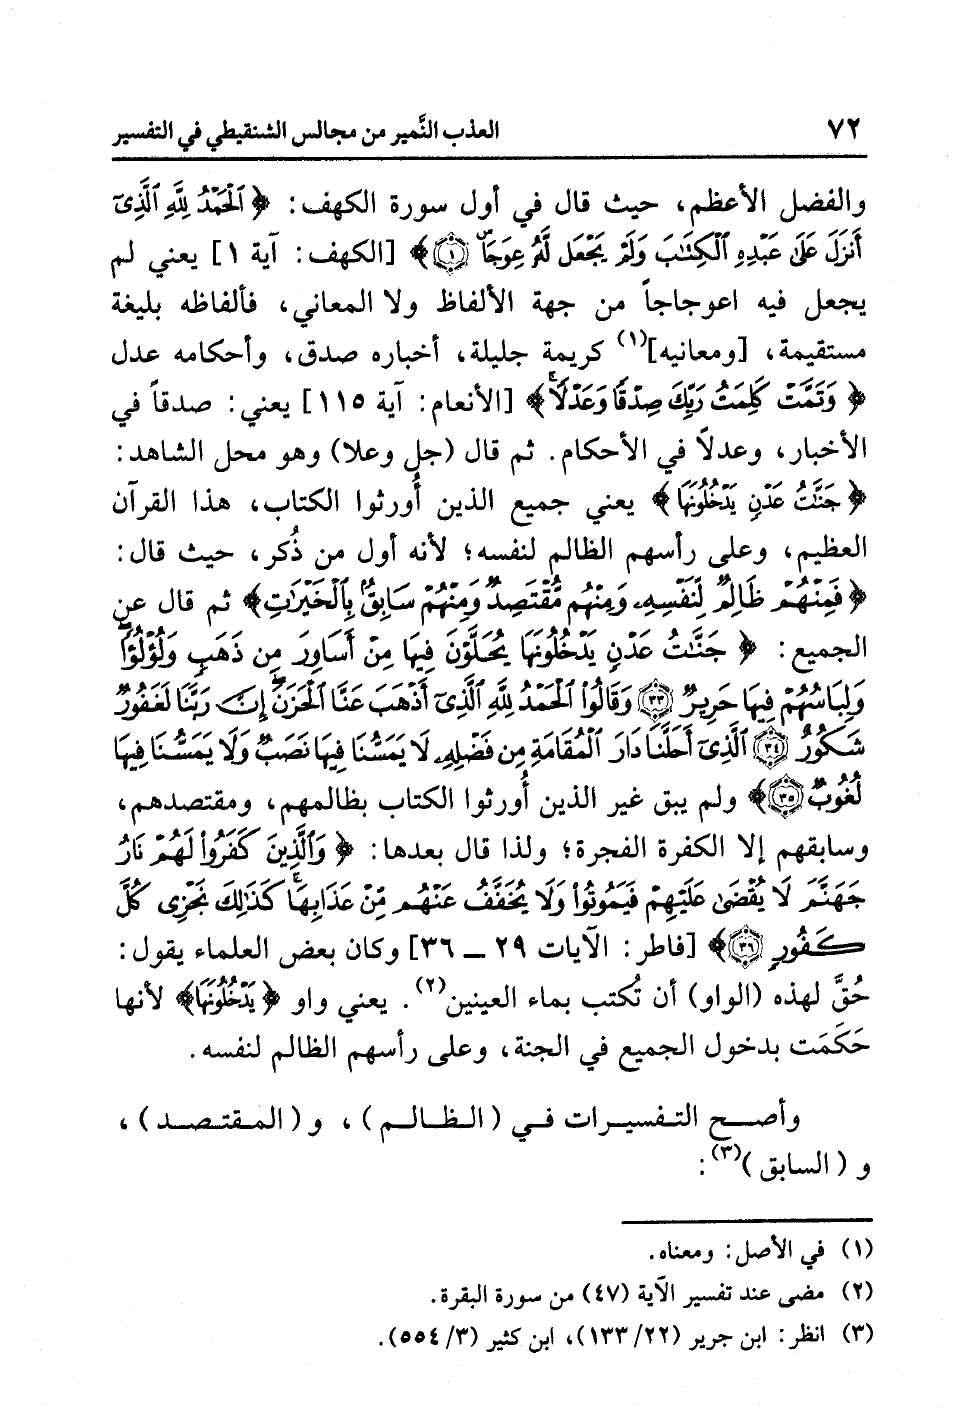 ٧٢ العذب النَّمير من مجالس الشنقيطي في التفسير
والفضل الأعظم، حيث قال في أول سورة الكهف: ﴿ ٱلْحَمْدُ لِلَّهِ ٱلَّذِىٓ
أَنزَلَ عَلَىٰ عَبْدِهِ ٱلْكِتَٰبَ وَلَمْ يَجْعَل لَّهُۥ عِوَجَاۜ ﴿١﴾ ﴾ [الكهف: آية ١] يعني لم
يجعل فيه اعوجاجاً من جهة الألفاظ ولا المعاني، فألفاظه بليغة
مستقيمة، [ومعانيه](١) كريمة جليلة، أخباره صدق، وأحكامه عدل
﴿ وَتَمَّتْ كَلِمَتُ رَبِّكَ صِدْقًا وَعَدْلًا ﴾ [الأنعام: آية ١١٥] يعني: صدقاً في
الأخبار، وعدلاً في الأحكام. ثم قال (جل وعلا) وهو محل الشاهد:
﴿ جَنَّٰتُ عَدْنٍ يَدْخُلُونَهَا ﴾ يعني جميع الذين أُورثوا الكتاب، هذا القرآن
العظيم، وعلى رأسهم الظالم لنفسه؛ لأنه أول من ذُكر، حيث قال:
﴿ فَمِنْهُمْ ظَالِمٌ لِّنَفْسِهِۦ وَمِنْهُم مُّقْتَصِدٌ وَمِنْهُمْ سَابِقٌۢ بِٱلْخَيْرَٰتِ ﴾ ثم قال عن
الجميع: ﴿ جَنَّٰتُ عَدْنٍ يَدْخُلُونَهَا يُحَلَّوْنَ فِيهَا مِنْ أَسَاوِرَ مِن ذَهَبٍ وَلُؤْلُؤًا ۖ
وَلِبَاسُهُمْ فِيهَا حَرِيرٌ ﴿٣٣﴾ وَقَالُوا۟ ٱلْحَمْدُ لِلَّهِ ٱلَّذِىٓ أَذْهَبَ عَنَّا ٱلْحَزَنَ ۖ إِنَّ رَبَّنَا لَغَفُورٌ
شَكُورٌ ﴿٣٤﴾ ٱلَّذِىٓ أَحَلَّنَا دَارَ ٱلْمُقَامَةِ مِن فَضْلِهِۦ لَا يَمَسُّنَا فِيهَا نَصَبٌ وَلَا يَمَسُّنَا فِيهَا
لُغُوبٌ ﴿٣٥﴾ ﴾ ولم يبق غير الذين أُورثوا الكتاب بظالمهم، ومقتصدهم،
وسابقهم إلا الكفرة الفجرة؛ ولذا قال بعدها: ﴿ وَٱلَّذِينَ كَفَرُوا۟ لَهُمْ نَارُ
جَهَنَّمَ لَا يُقْضَىٰ عَلَيْهِمْ فَيَمُوتُوا۟ وَلَا يُخَفَّفُ عَنْهُم مِّنْ عَذَابِهَا ۚ كَذَٰلِكَ نَجْزِى كُلَّ
كَفُورٍ ﴿٣٦﴾ ﴾ [فاطر: الآيات ٢٩ ــ ٣٦] وكان بعض العلماء يقول:
حُقَّ لهذه (الواو) أن تُكتب بماء العينين(٢). يعني واو ﴿ يَدْخُلُونَهَا ﴾ لأنها
حَكَمَت بدخول الجميع في الجنة، وعلى رأسهم الظالم لنفسه.
وأصح التفسيرات في (الظالم)، و(المقتصد)،
و(السابق)(٣):
(١) في الأصل: ومعناه.
(٢) مضى عند تفسير الآية (٤٧) من سورة البقرة.
(٣) انظر: ابن جرير (٢٢/ ١٣٣)، ابن كثير (٣/ ٥٥٤).